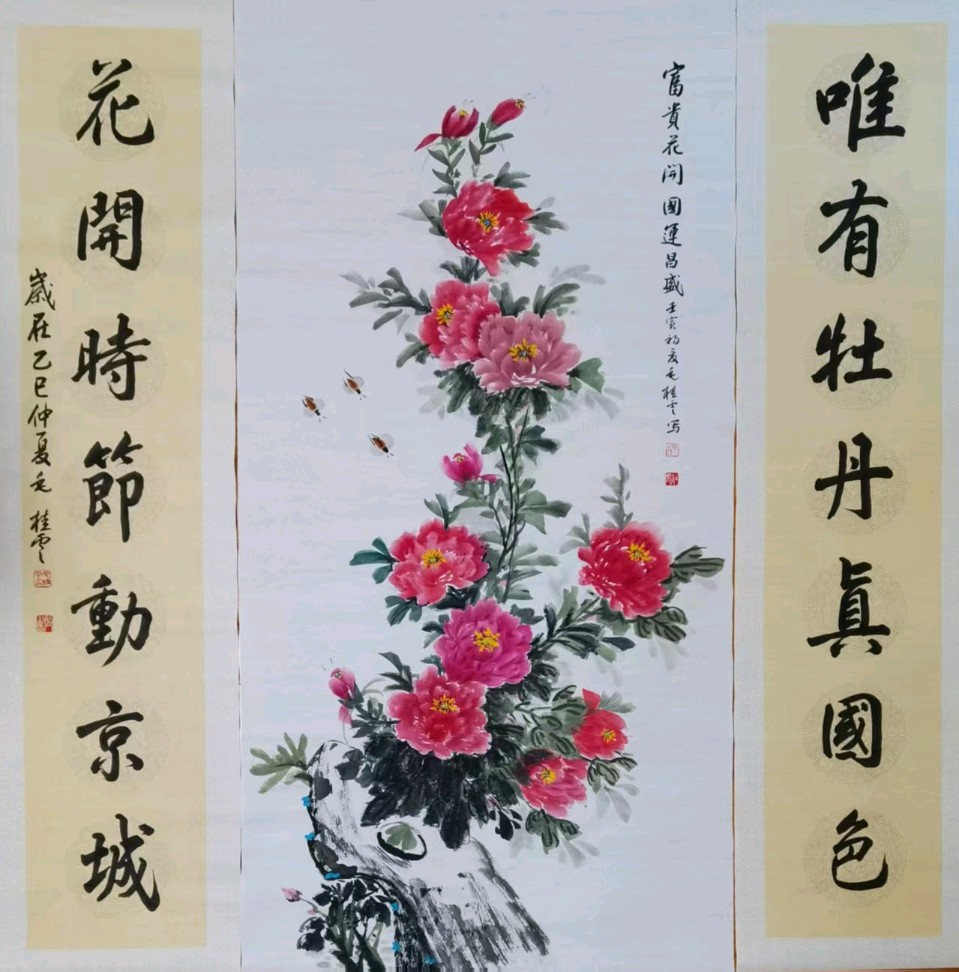 唯有牡丹真國色
富貴花開國運昌盛
壬寅初夏毛桂雲写
花開時節動京城
歲在乙巳仲夏毛桂雲